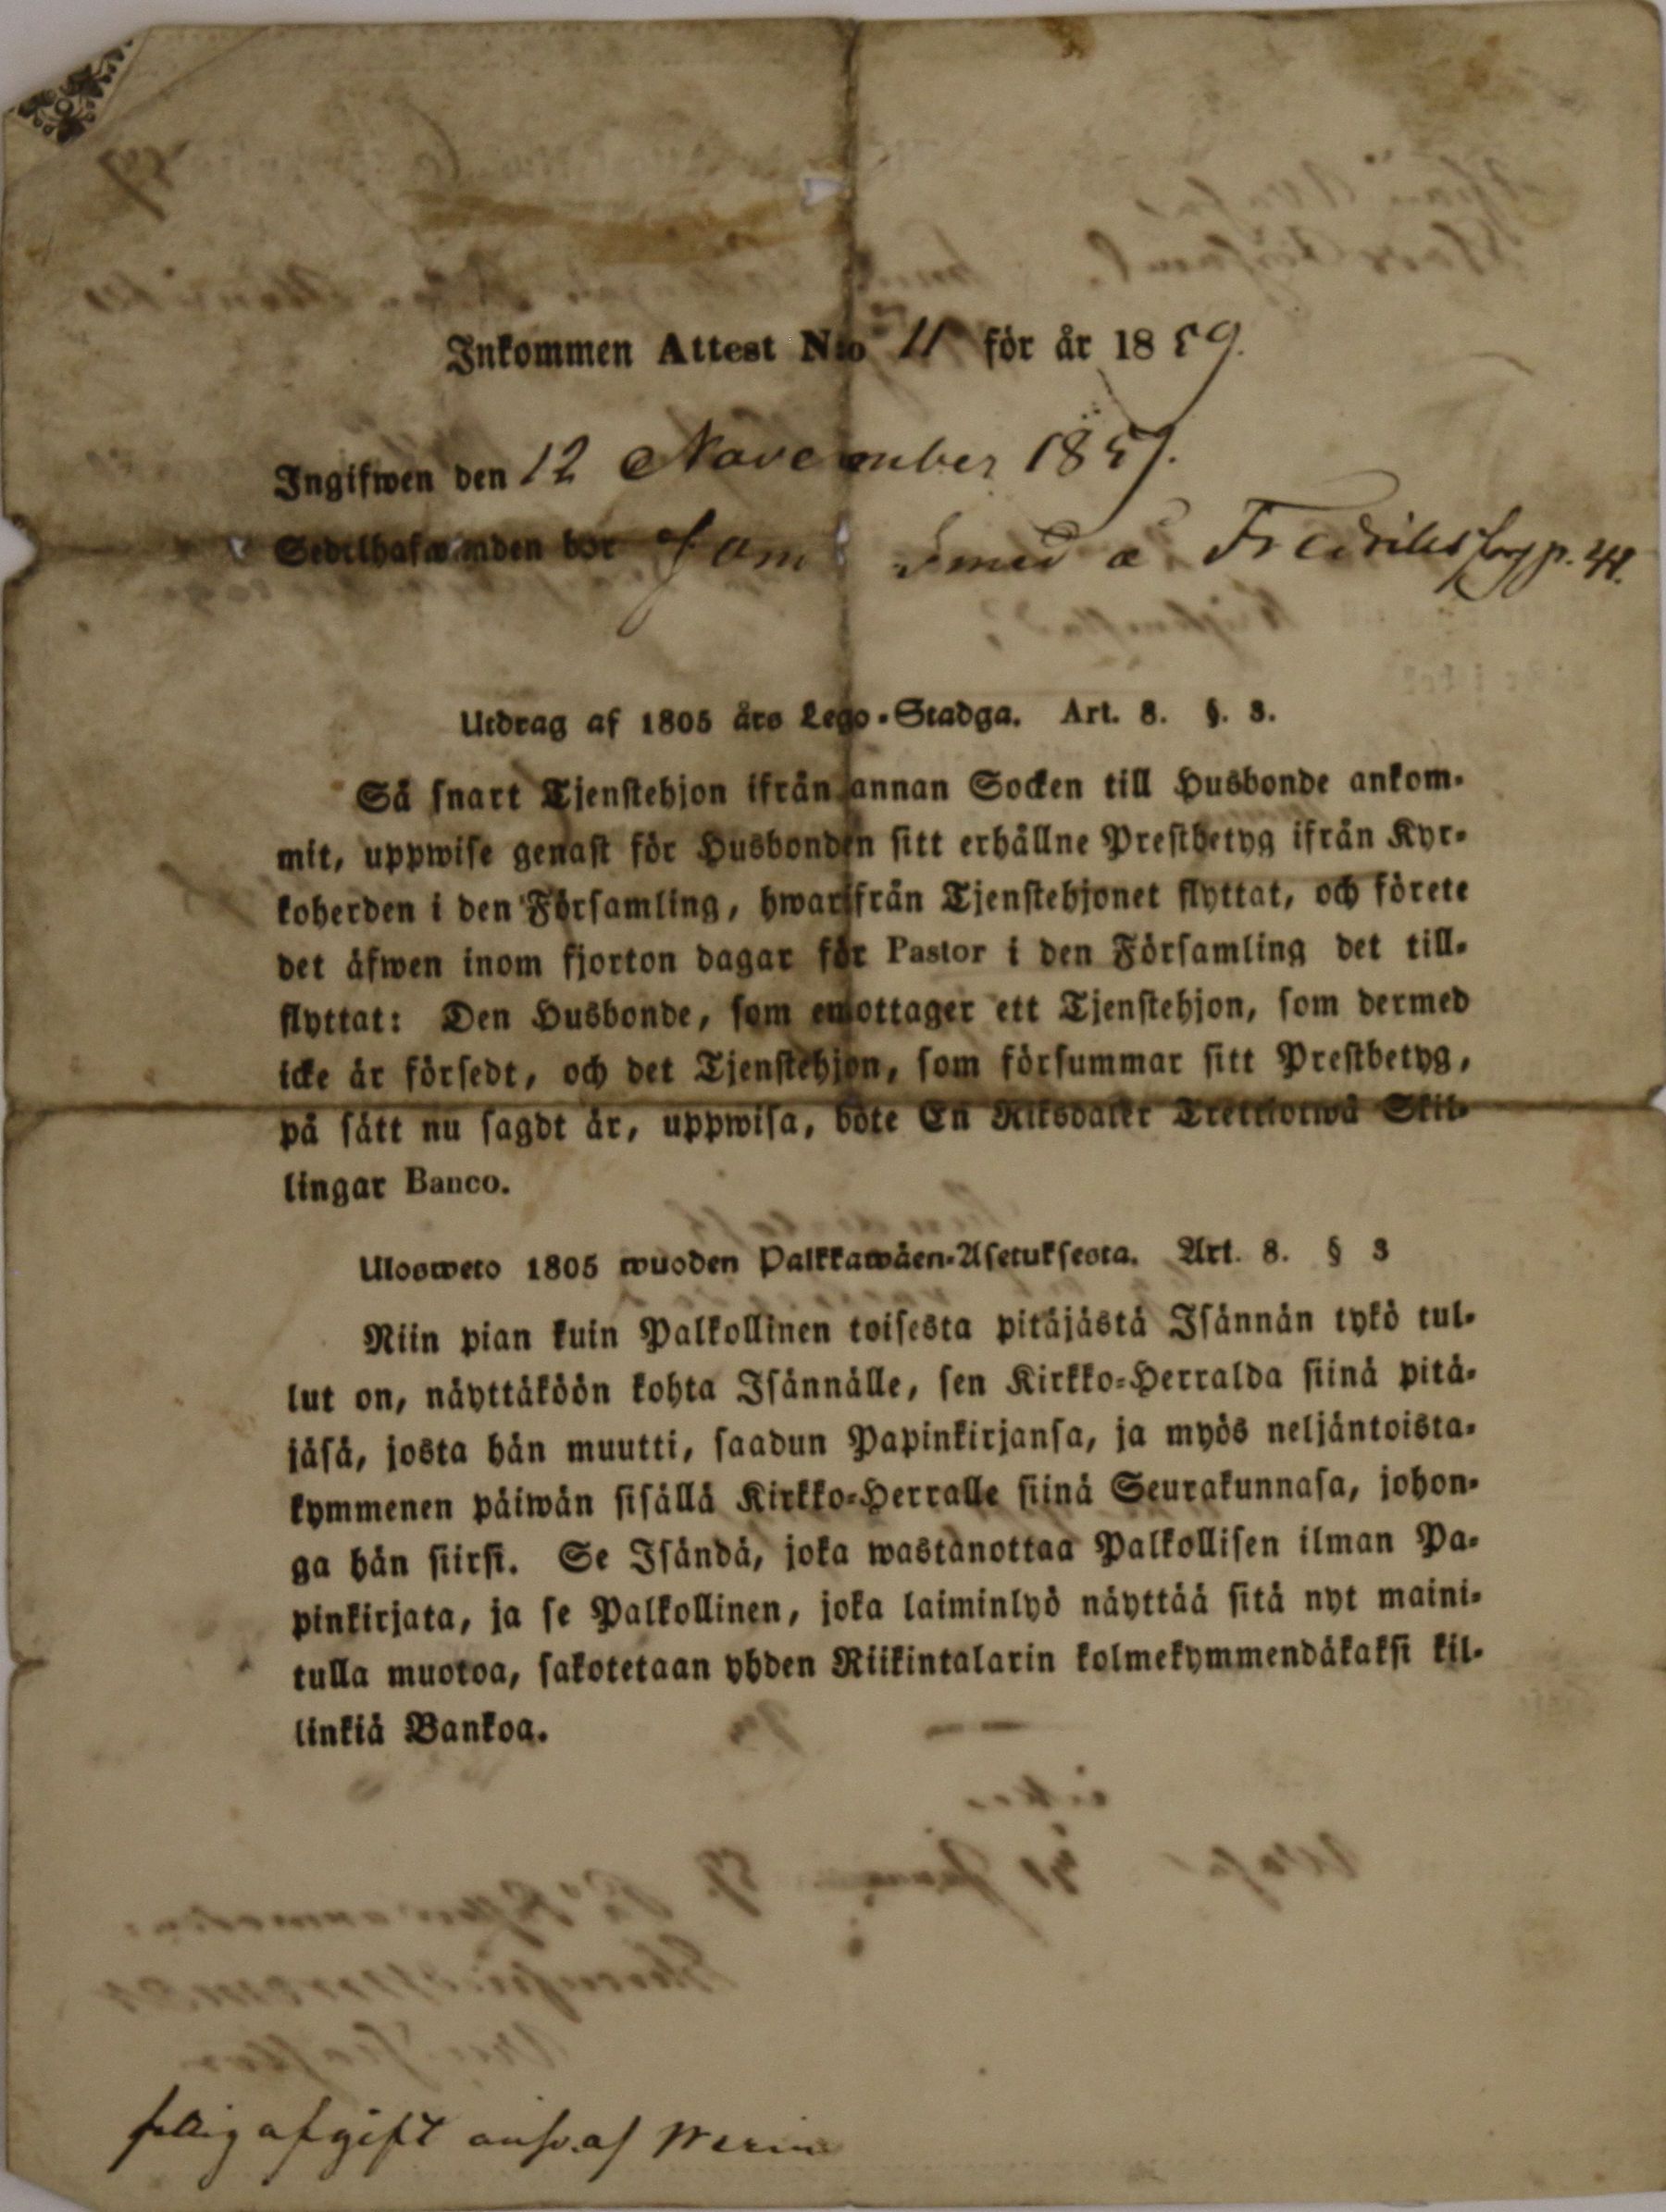 Inkommen Attest N:o 11 för år 1859.
Ingifwen den 12 November 1859.
Sedelhafwanden bor som smed å Fredriksfors p. 41.
Utdrag af 1805 års Lego-Stadga. Art. 8. §. 3.
Så snart Tjenstehjon ifrån annan Socken till Husbonde ankom-
mit, uppwise genast för Husbonden sitt erhållne Prestbetyg ifrån Kyr-
koherden i den Församling, hwarifrån Tjenstehjonet flyttat, och förete
det äfwen inom fjorton dagar för Pastor i den Församling det till-
flyttat: Den Husbonde, som emottager ett Tjenstehjon, som dermed
icke är försedt, och det Tjenstehjon, som försummar sitt Prestbetyg,
på sätt nu sagdt är, uppwisa, böte En Riksdaler Trettiotwå Skil-
lingar Banco.
Ulosweto 1805 wuoden Palkkawäen-Asetuksesta. Art. 8. § 3
Niin pian kuin Palkollinen toisesta pitäjästä Isännän tykö tul-
lut on, näyttäköön kohta Isännälle, sen Kirkko-Herralda siinä pitä-
jäsä, josta hän muutti, saadun Papinkirjansa, ja myös neljäntoista-
kymmenen päiwän sisällä Kirkko-Herralle siinä Seurakunnasa, johon-
ga hän siirsi. Se Isändä, joka wastanottaa Palkollisen ilman Pa-
pinkirjata, ja se Palkollinen, joka laiminlyö näyttää sitä nyt maini-
tulla muotoa, sakotetaan yhden Riikintalarin kolmekymmendäkaksi kil-
linkiä Bankoa.
afgift af